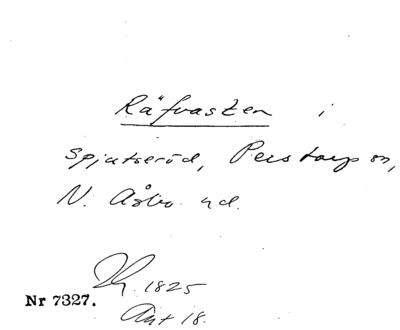 Räfvasten i
Spjutseröd, Perstorp sn,
N. Åsbo hd.
1825
Nr 7327.
Akt 18.